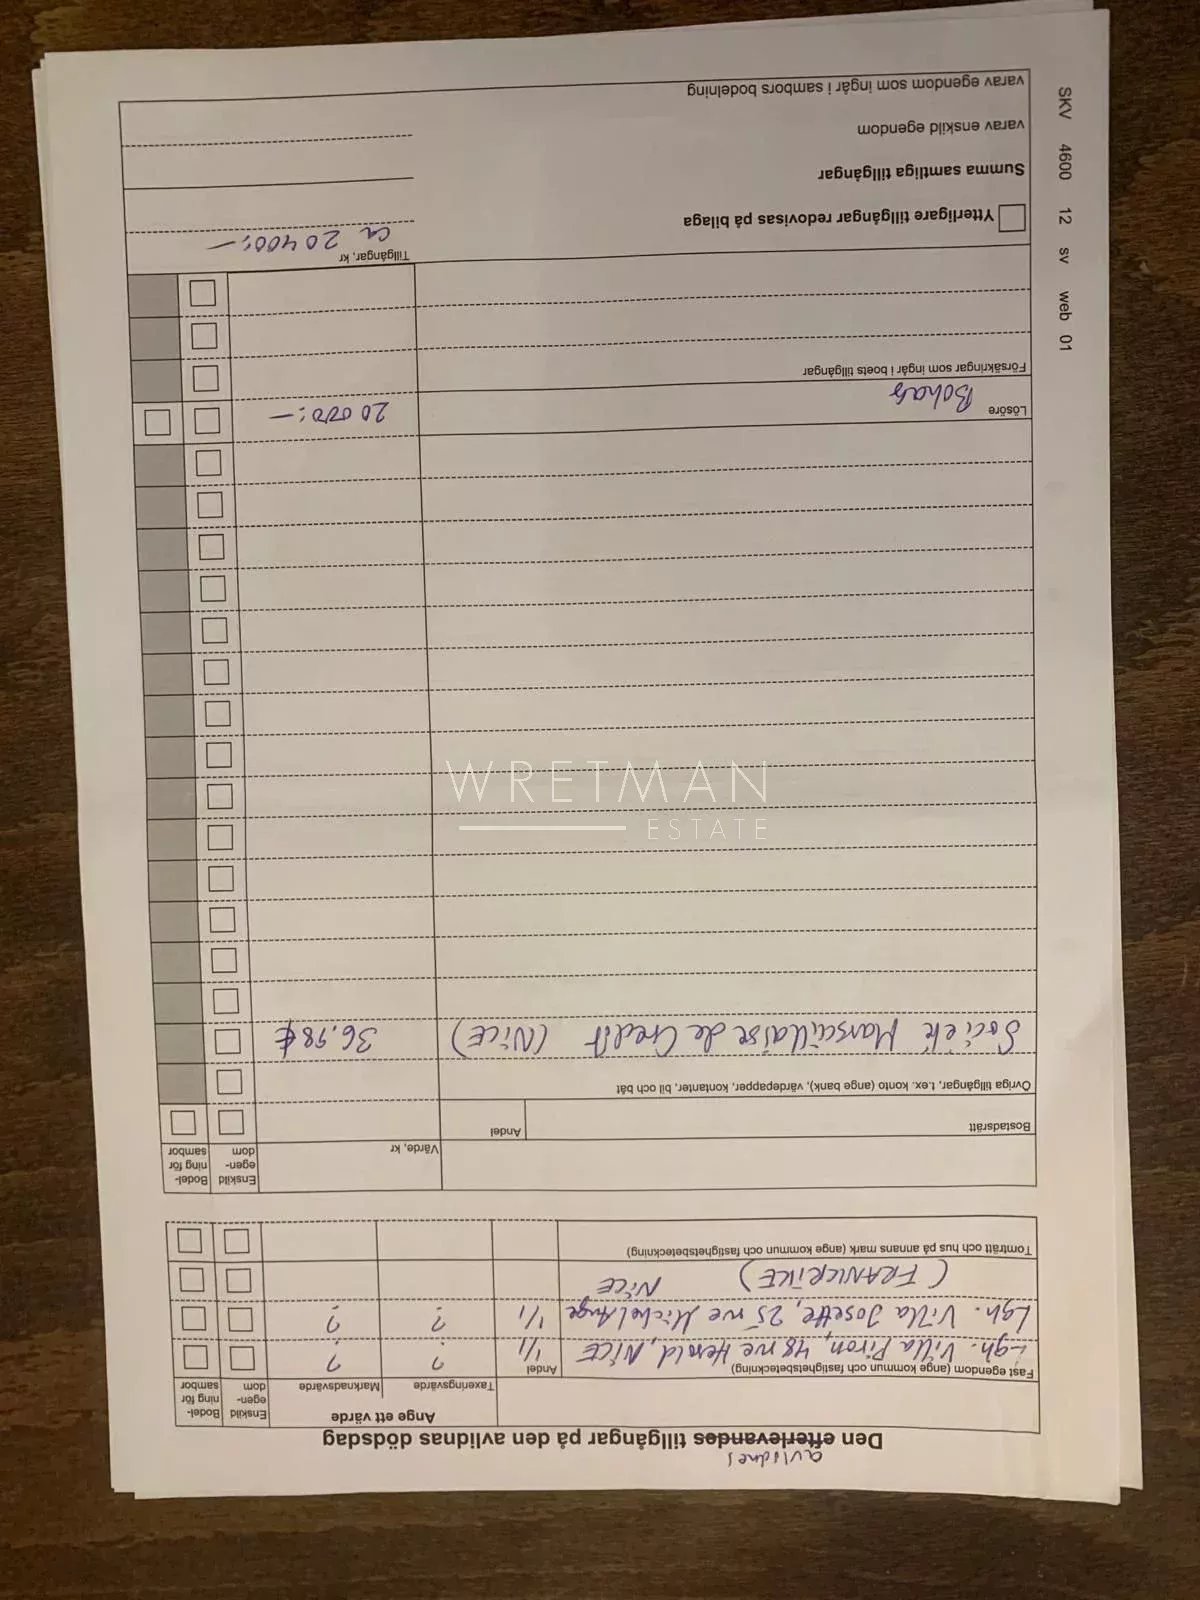 avlidnes
Den efterlevandes tillgångar på den avlidnas dödsdag
Fast egendom (ange kommun och fastighetsbeteckning)
Andel
Ange ett värde
Taxeringsvärde
Marknadsvärde
Enskild egen-
dom
Bodel-
ning för
sambor
Lgh. Villa Piron, 48 rue Herold, NICE 1/1 ? ?
Lgh. Villa Josette, 25 rue Michel Ange 1/1 ? ?
(FRANKRIKE) NICE
Tomträtt och hus på annans mark (ange kommun och fastighetsbeteckning)
Värde, kr
Enskild
egen-
dom
Bodel-
ning för
sambor
Bostadsrätt
Andel
Övriga tillgångar, t.ex. konto (ange bank), värdepapper, kontanter, bil och båt
Société Marseillaise de Credit (NICE) 36.98 €
WRETMAN
ESTATE
Lösöre
Bohag 20 000:-
Försäkringar som ingår i boets tillgångar
Tillgångar, kr
Ytterligare tillgångar redovisas på bilaga
ca 20 400:-
Summa samtliga tillgångar
varav enskild egendom
varav egendom som ingår i sambors bodelning
SKV 4600 12 sv web 01